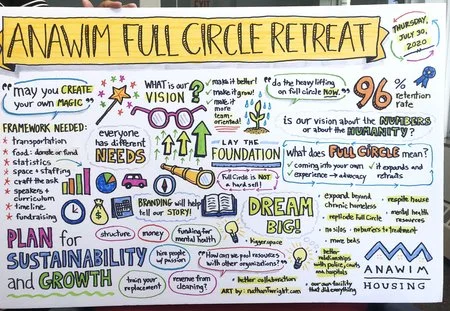 EXIT
ANAWIM FULL CIRCLE RETREAT
THURSDAY,
JULY 30,
2020
"may you CREATE
your own MAGIC"
WHAT is our
VISION?
✓ make it better!
✓ make it grow!
✓ make it
more
team-
oriented!
"do the heavy lifting
on full circle NOW."
96%
retention
rate
is our vision about the NUMBERS
or about the HUMANITY?
FRAMEWORK NEEDED:
* transportation
* food: donate or fund
* statistics
* space + staffing
* craft the ask
* speakers +
curriculum
* timeline
* fundraising
everyone
has different
NEEDS
LAY THE
FOUNDATION
Full Circle is NOT
a hard sell!
what does FULL CIRCLE mean?
✓ coming into your own
experience → advocacy
✓ it expands and
retreats
BRANDING will help
tell our STORY!
DREAM
BIG!
• expand beyond
chronic homeless
• replicate Full Circle
• no silos
• no barriers to treatment
• more beds
• respite house
• mental health
resources
• bigger space
• better
relationships
with police, courts
and hospitals
• better collaboration
• our own facility
that did everything
PLAN for
SUSTAINABILITY
and GROWTH
structure
money
funding for
mental health
hire people
w/ passion
"How can we pool resources
with other organizations?"
train your
replacement
revenue from
cleaning?
ART by: nathanTwright.com
ANAWIM
HOUSING